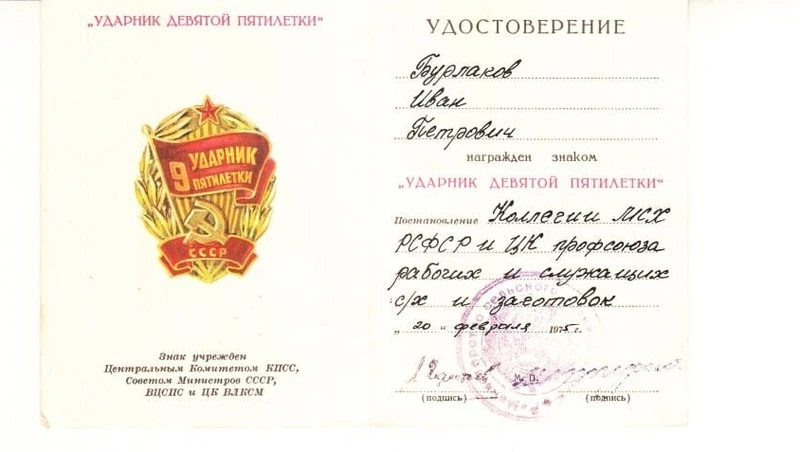 „УДАРНИК ДЕВЯТОЙ ПЯТИЛЕТКИ“
9 УДАРНИК
ПЯТИЛЕТКИ
СССР
Знак учрежден
Центральным Комитетом КПСС,
Советом Министров СССР,
ВЦСПС и ЦК ВЛКСМ
УДОСТОВЕРЕНИЕ
Бурлаков
Иван
Петрович
награжден знаком
„УДАРНИК ДЕВЯТОЙ ПЯТИЛЕТКИ“
Постановление Коллегии МСХ
РСФСР и ЦК профсоюза
рабочих и служащих
с/х и заготовок
„20 „ февраля 1975 г.
М.П.
(подпись) (подпись)